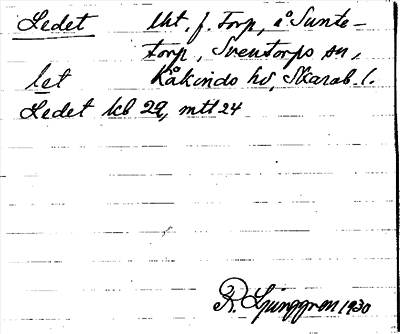 Ledet lht. f. Torp, å Sunte-
torp, Sventorps sn,
let Kåkinds hd, Skarab. l.
Ledet kb 29, mtt 24
R. Ljunggren 1930